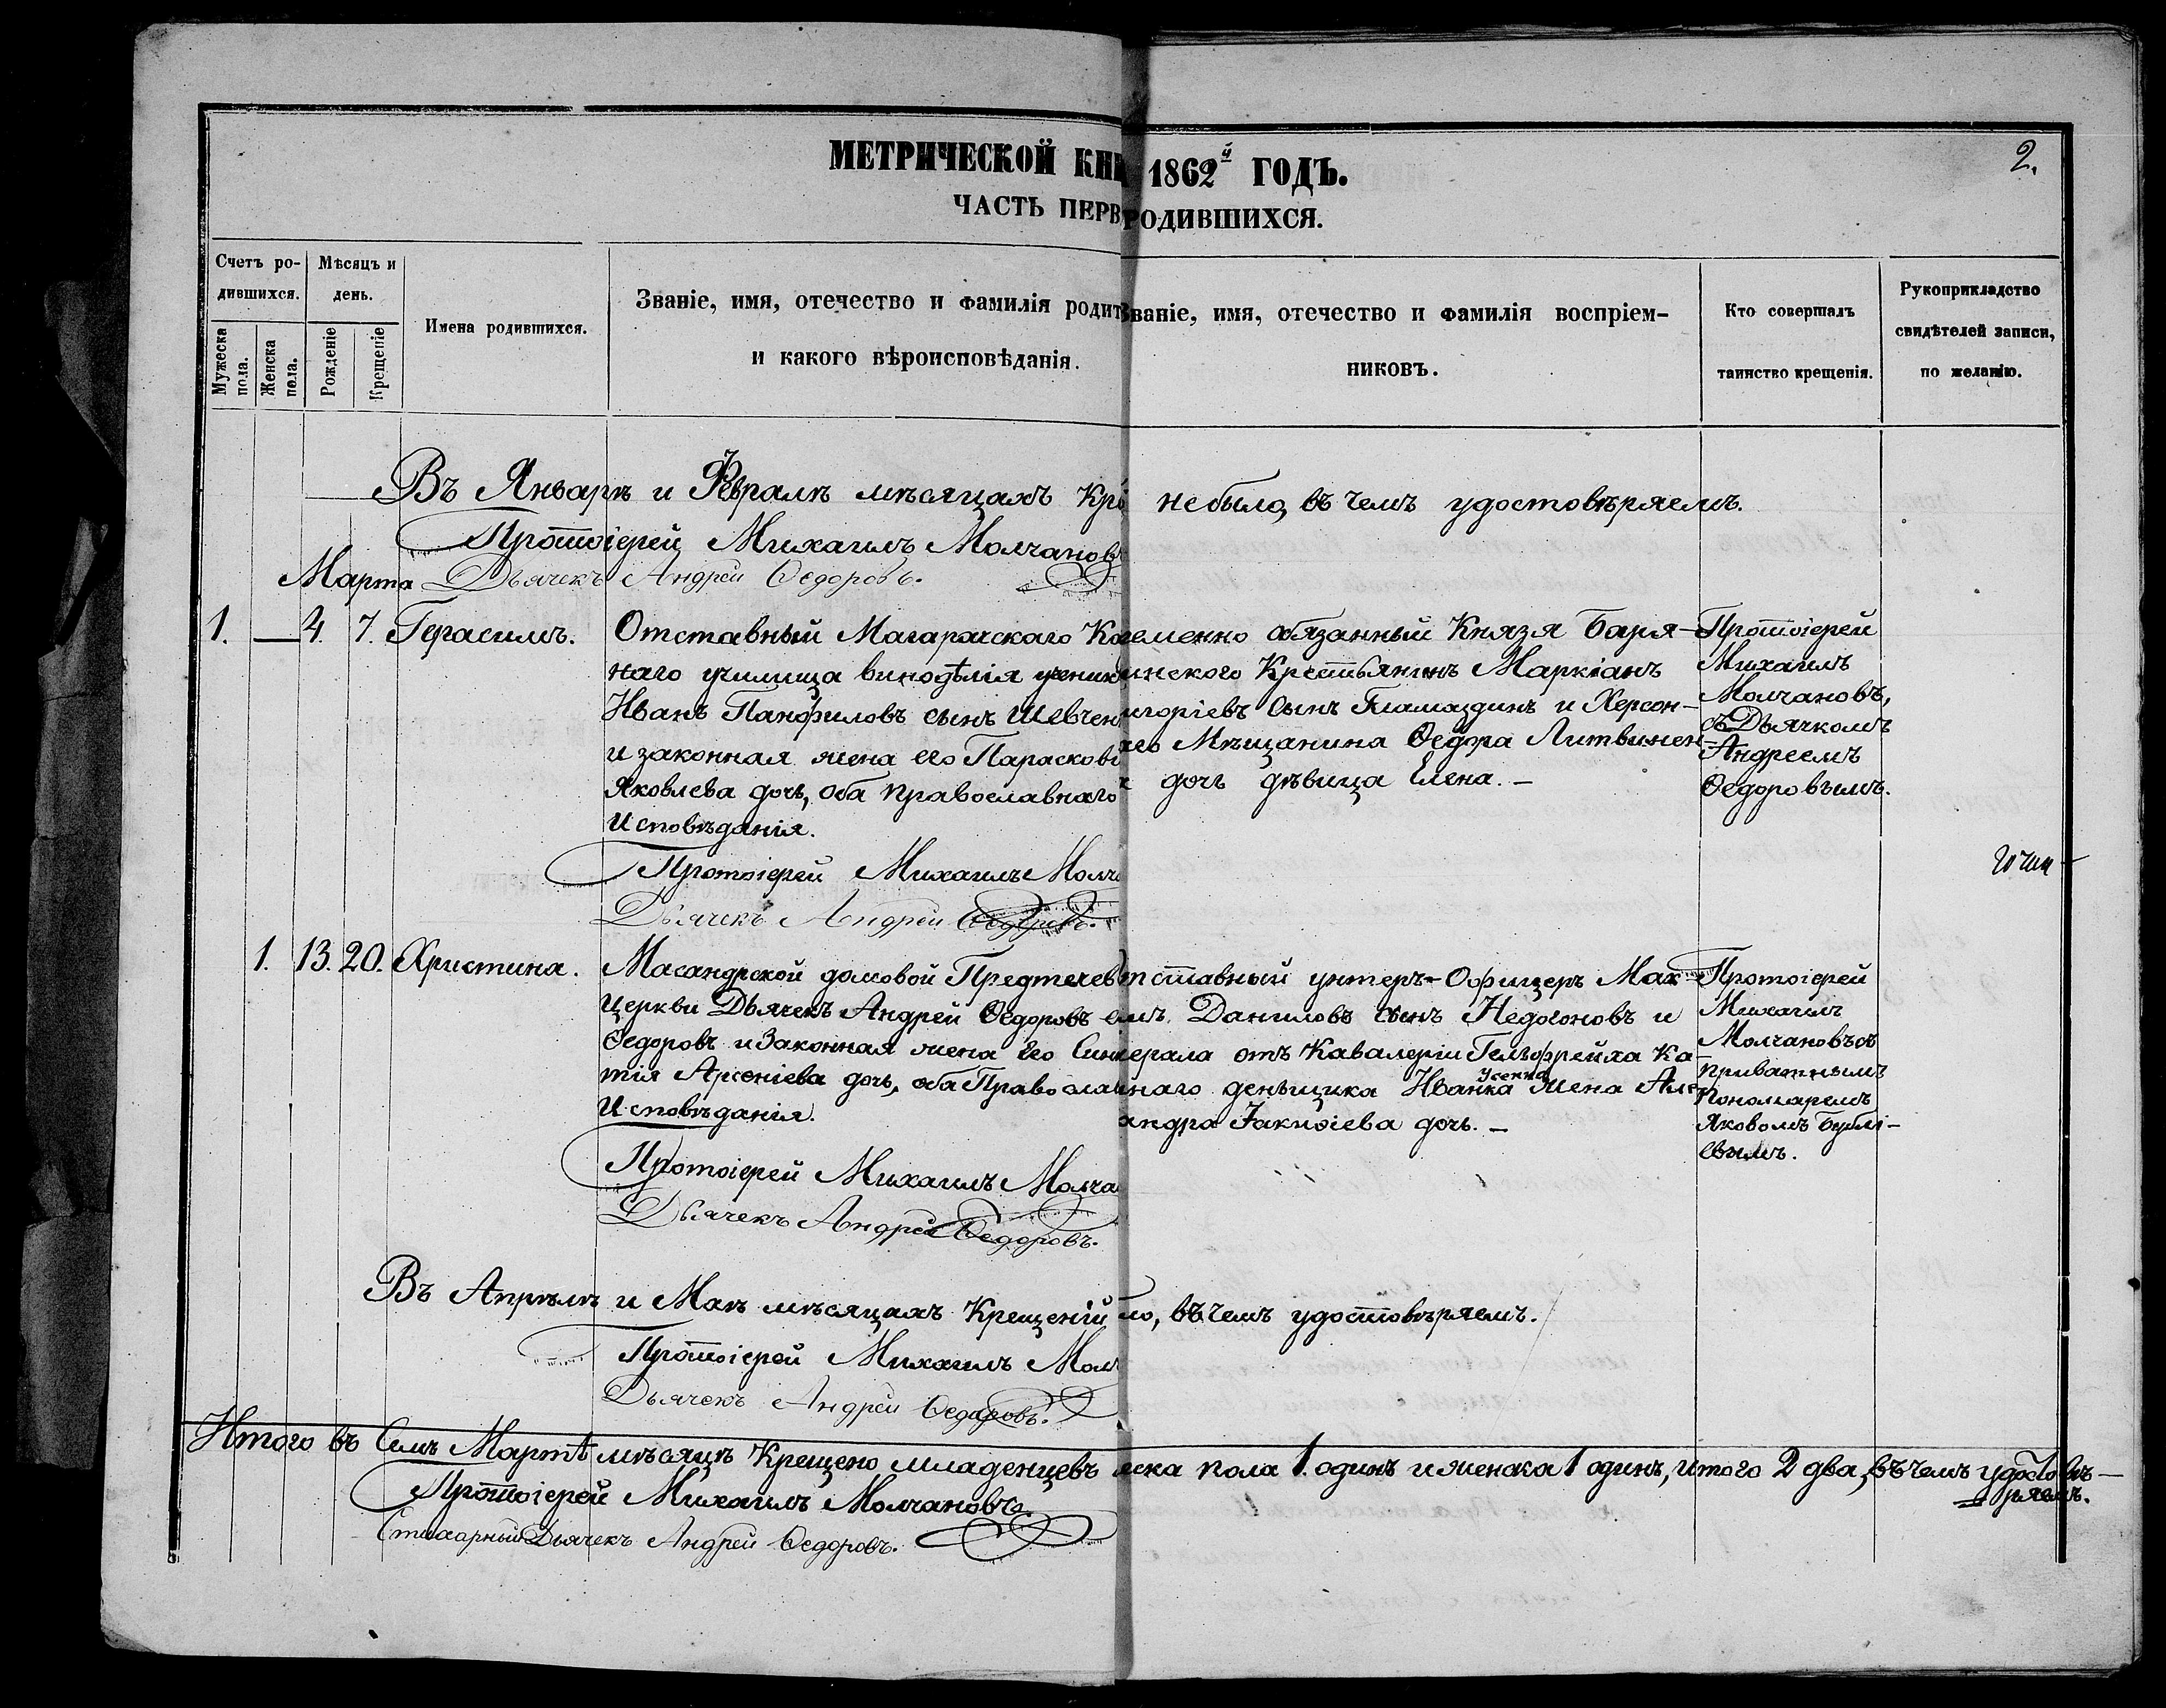 2.
МЕТРИЧЕСКОЙ КНИ 1862й ГОДЪ.
ЧАСТЬ ПЕРВ РОДИВШИХСЯ.
Счетъ ро-
дившихся.
Мужеска
пола.
Женска
пола.
Мѣсяцъ и
день.
Рожденіе
Крещеніе
Имена родившихся.
Званіе, имя, отечество и фамилія родит
и какого вѣроисповѣданія.
Званіе, имя, отечество и фамилія воспріем-
никовъ.
Кто совершалъ
таинство крещенія.
Рукоприкладство
свидѣтелей записи,
по желанію.
Въ Январѣ и Февралѣ мѣсяцахъ Кр не было, въ чемъ удостовѣряемъ.
Протоіерей Михаилъ Молчановъ
Дьячекъ Андрей Ѳедоровъ.
Марта
1. — 4. 7. Герасимъ.
Отставный Магарачскаго Ка
наго училища винодѣлія ученик
Иванъ Панфиловъ сынъ Шевчен
и законная жена его Парасков
Яковлева дочь, оба православнаго
Исповѣданія.
еменно обязанный Князя Баря-
инскаго Крестьянинъ Маркіанъ
игоріевъ сынъ Гламаздинъ и Херсон-
аго Мѣщанина Ѳедора Литвинен-
дочь дѣвица Елена. —
Протоіерей
Михаилъ
Молчановъ,
съ Дьячкомъ
Андреемъ
Ѳедоровымъ.
Протоіерей Михаилъ Молч
Дьячекъ Андрей Ѳедоровъ.
1. 13. 20. Христина.
Масандрской домовой Предтечев
Церкви Дьячекъ Андрей Ѳедоровъ с
Ѳедоровъ и Законная жена его Син
тія Арсеніева дочь, оба Православ
Исповѣданія.
Отставный унтеръ-Офицеръ Мак-
имъ Даниловъ сынъ Недогоновъ и
ерала отъ Кавалеріи Гельфрейха Ка-
наго деньщика Ивана Усенка жена Алек
андра Іакиѳіева дочь. —
Протоіерей
Михаилъ
Молчановъ съ
приватнымъ
Пономаремъ
Яковомъ Булі-
евымъ.
Протоіерей Михаилъ Молча
Дьячекъ Андрей Ѳедоровъ.
Въ Апрѣлѣ и Маѣ мѣсяцахъ Крещеній ло, въ чемъ удостовѣряемъ.
Протоіерей Михаилъ Мол
Дьячекъ Андрей Ѳедоровъ.
Итого въ Семъ Мартѣ мѣсяцѣ Крещено младенцевъ жска пола 1. одинъ и женска 1 одинъ, итого 2 два, въ чемъ удостовѣ-
ряемъ.
Протоіерей Михаилъ Молчановъ.
Стихарный Дьячекъ Андрей Ѳедоровъ.